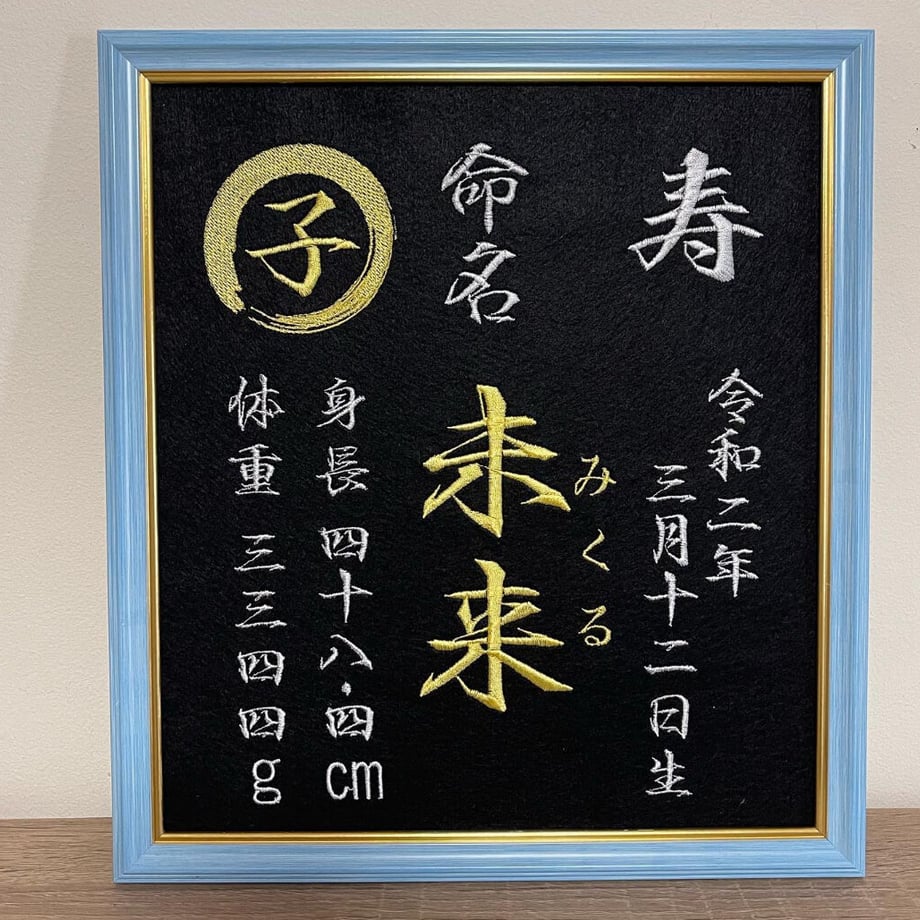 寿
令和二年
三月十二日生
命名
未来
みくる
子
身長 四十八.四cm
体重 三三四四g